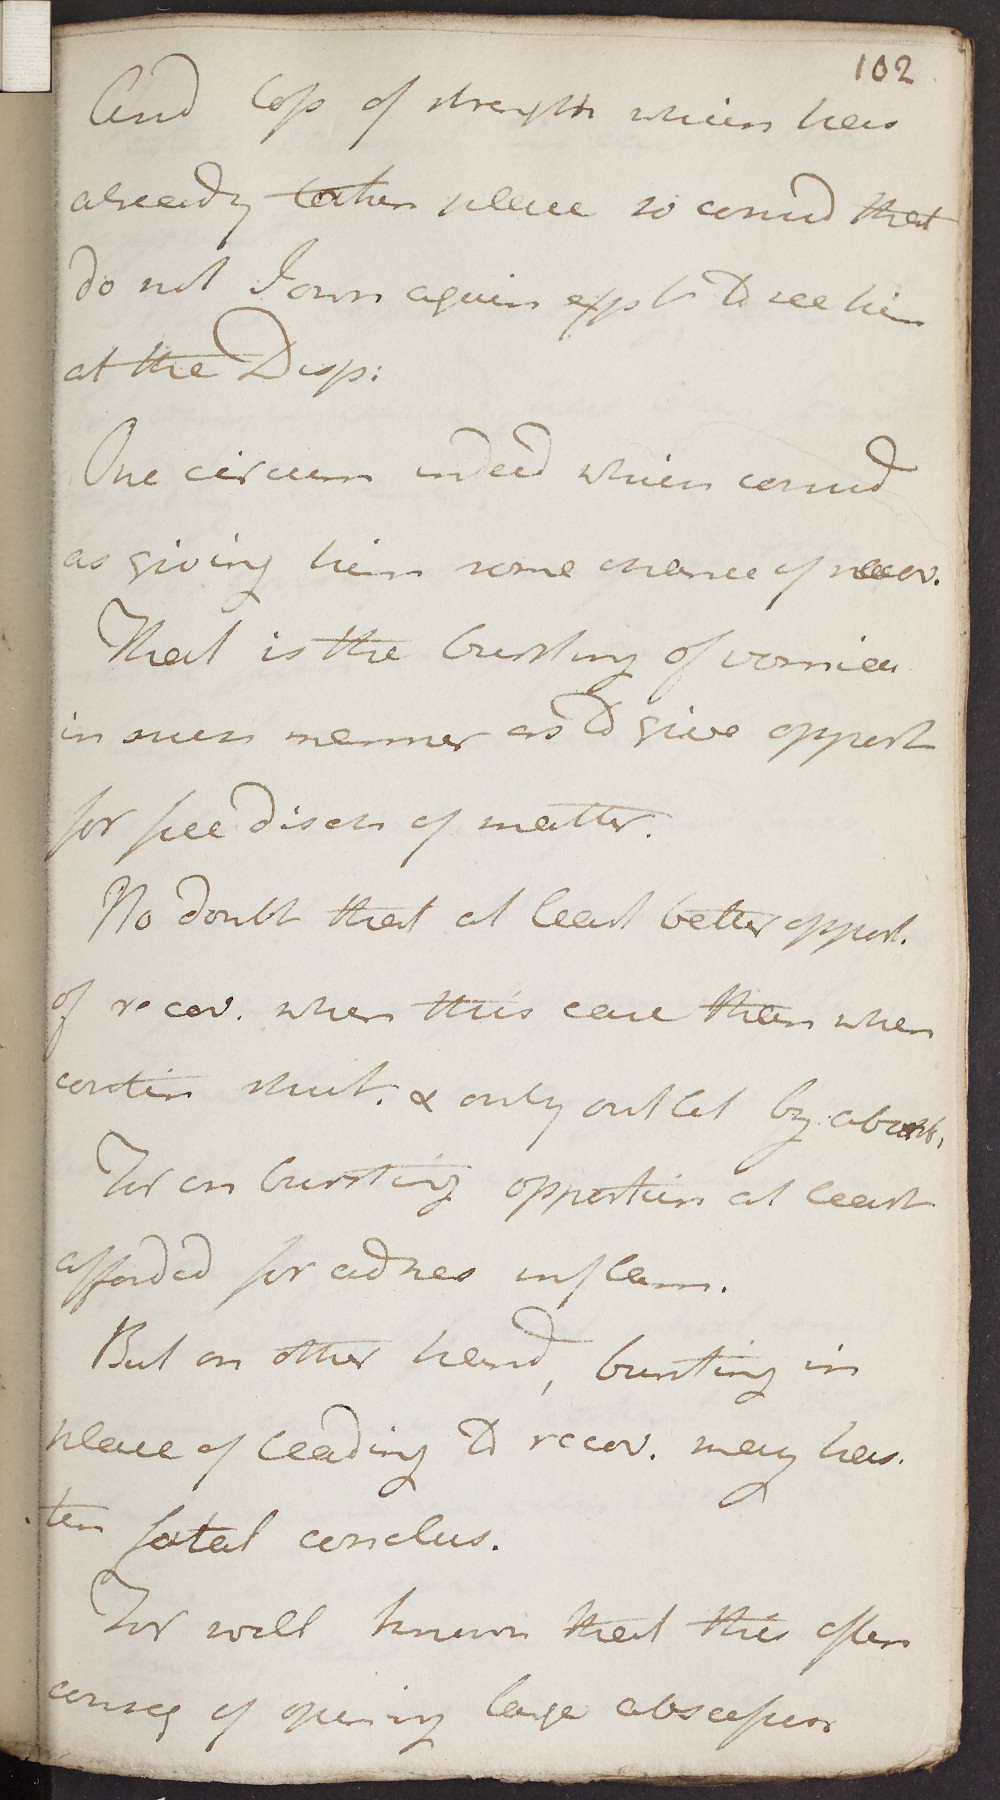 102
And loss of strength which has
already taken place so consid that
do not I own again expect to see him
at the Disp:
One circum indeed which consid
as giving him some chance of recov.
That is the bursting of vomica
in such manner as to give opport
for free disch of matter.
No doubt that at least better opport.
of recov. when this case than when
contin shut. & only outlet by absorb.
For on bursting opportun at least
afforded for adhes inflam.
But on other hand, bursting in
place of leading to recov. may has.
ten fatal conclus.
For well known that this often
conseq of opening large abscesses